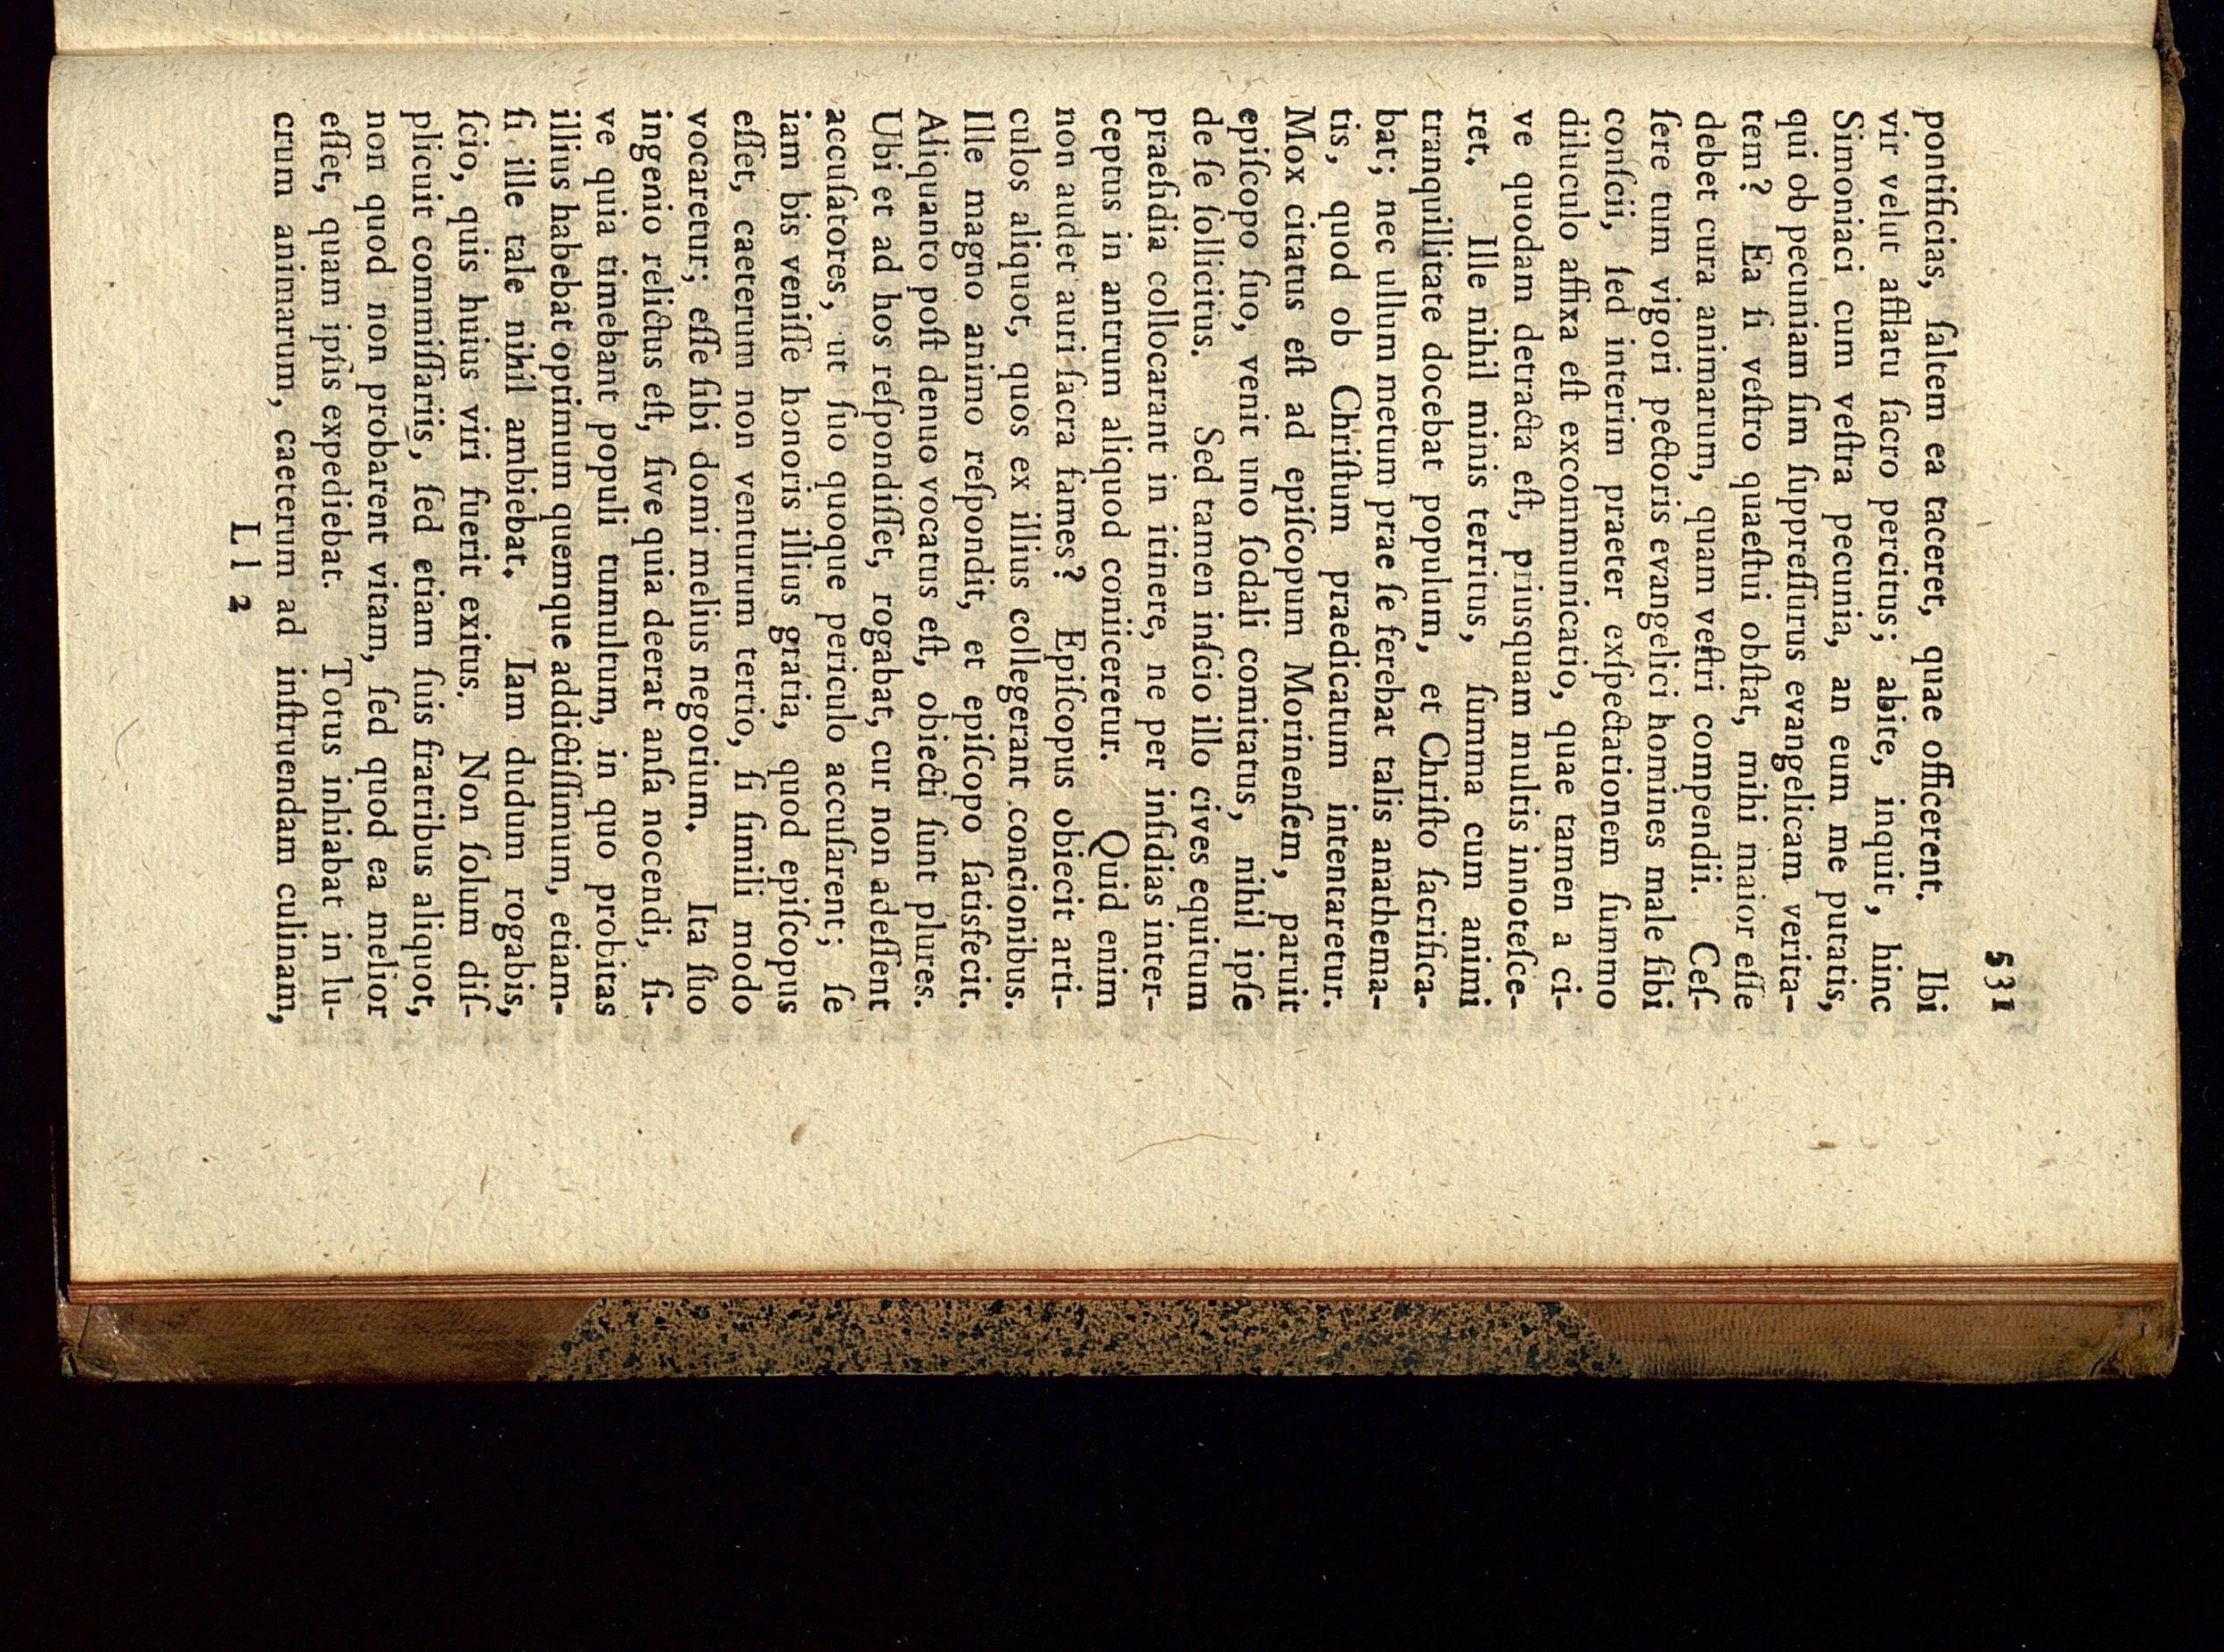 531
pontificias, ſaltem ea taceret, quae officerent. Ibi
vir velut afflatu ſacro percitus; abite, inquit, hinc
Simoniaci cum veſtra pecunia, an eum me putatis,
qui ob pecuniam ſim ſuppreſſurus evangelicam verita-
tem? Ea ſi veſtro quaeſtui obſtat, mihi maior eſſe
debet cura animarum, quam veſtri compendii. Ceſ-
ſere tum vigori pectoris evangelici homines male ſibi
conſcii, ſed interim praeter exſpectationem ſummo
diluculo affixa eſt excommunicatio, quae tamen a ci-
ve quodam detracta eſt, priusquam multis innoteſce-
ret. Ille nihil minis territus, ſumma cum animi
tranquillitate docebat populum, et Chriſto ſacrifica-
bat; nec ullum metum prae ſe ferebat talis anathema-
tis, quod ob Chriſtum praedicatum intentaretur.
Mox citatus eſt ad epiſcopum Morinenſem, paruit
epiſcopo ſuo, venit uno ſodali comitatus, nihil ipſe
de ſe ſollicitus. Sed tamen inſcio illo cives equitum
praeſidia collocarant in itinere, ne per inſidias inter-
ceptus in antrum aliquod coniiceretur. Quid enim
non audet auri ſacra fames? Epiſcopus obiecit arti-
culos aliquot, quos ex illius collegerant concionibus.
Ille magno animo reſpondit, et epiſcopo ſatisfecit.
Aliquanto poſt denuo vocatus eſt, obiecti ſunt plures.
Ubi et ad hos reſpondiſſet, rogabat, cur non adeſſent
accuſatores, ut ſuo quoque periculo accuſarent; ſe
iam bis veniſſe honoris illius gratia, quod epiſcopus
eſſet, caeterum non venturum tertio, ſi ſimili modo
vocaretur; eſſe ſibi domi melius negotium. Ita ſuo
ingenio relictus eſt, ſive quia deerat anſa nocendi, ſi-
ve quia timebant populi tumultum, in quo probitas
illius habebat optimum quemque addictiſſimum, etiam-
ſi ille tale nihil ambiebat. Iam dudum rogabis,
ſcio, quis huius viri fuerit exitus. Non ſolum diſ-
plicuit commiſſariis, ſed etiam ſuis fratribus aliquot,
non quod non probarent vitam, ſed quod ea melior
eſſet, quam ipſis expediebat. Totus inhiabat in lu-
crum animarum, caeterum ad inſtruendam culinam,
L l 2